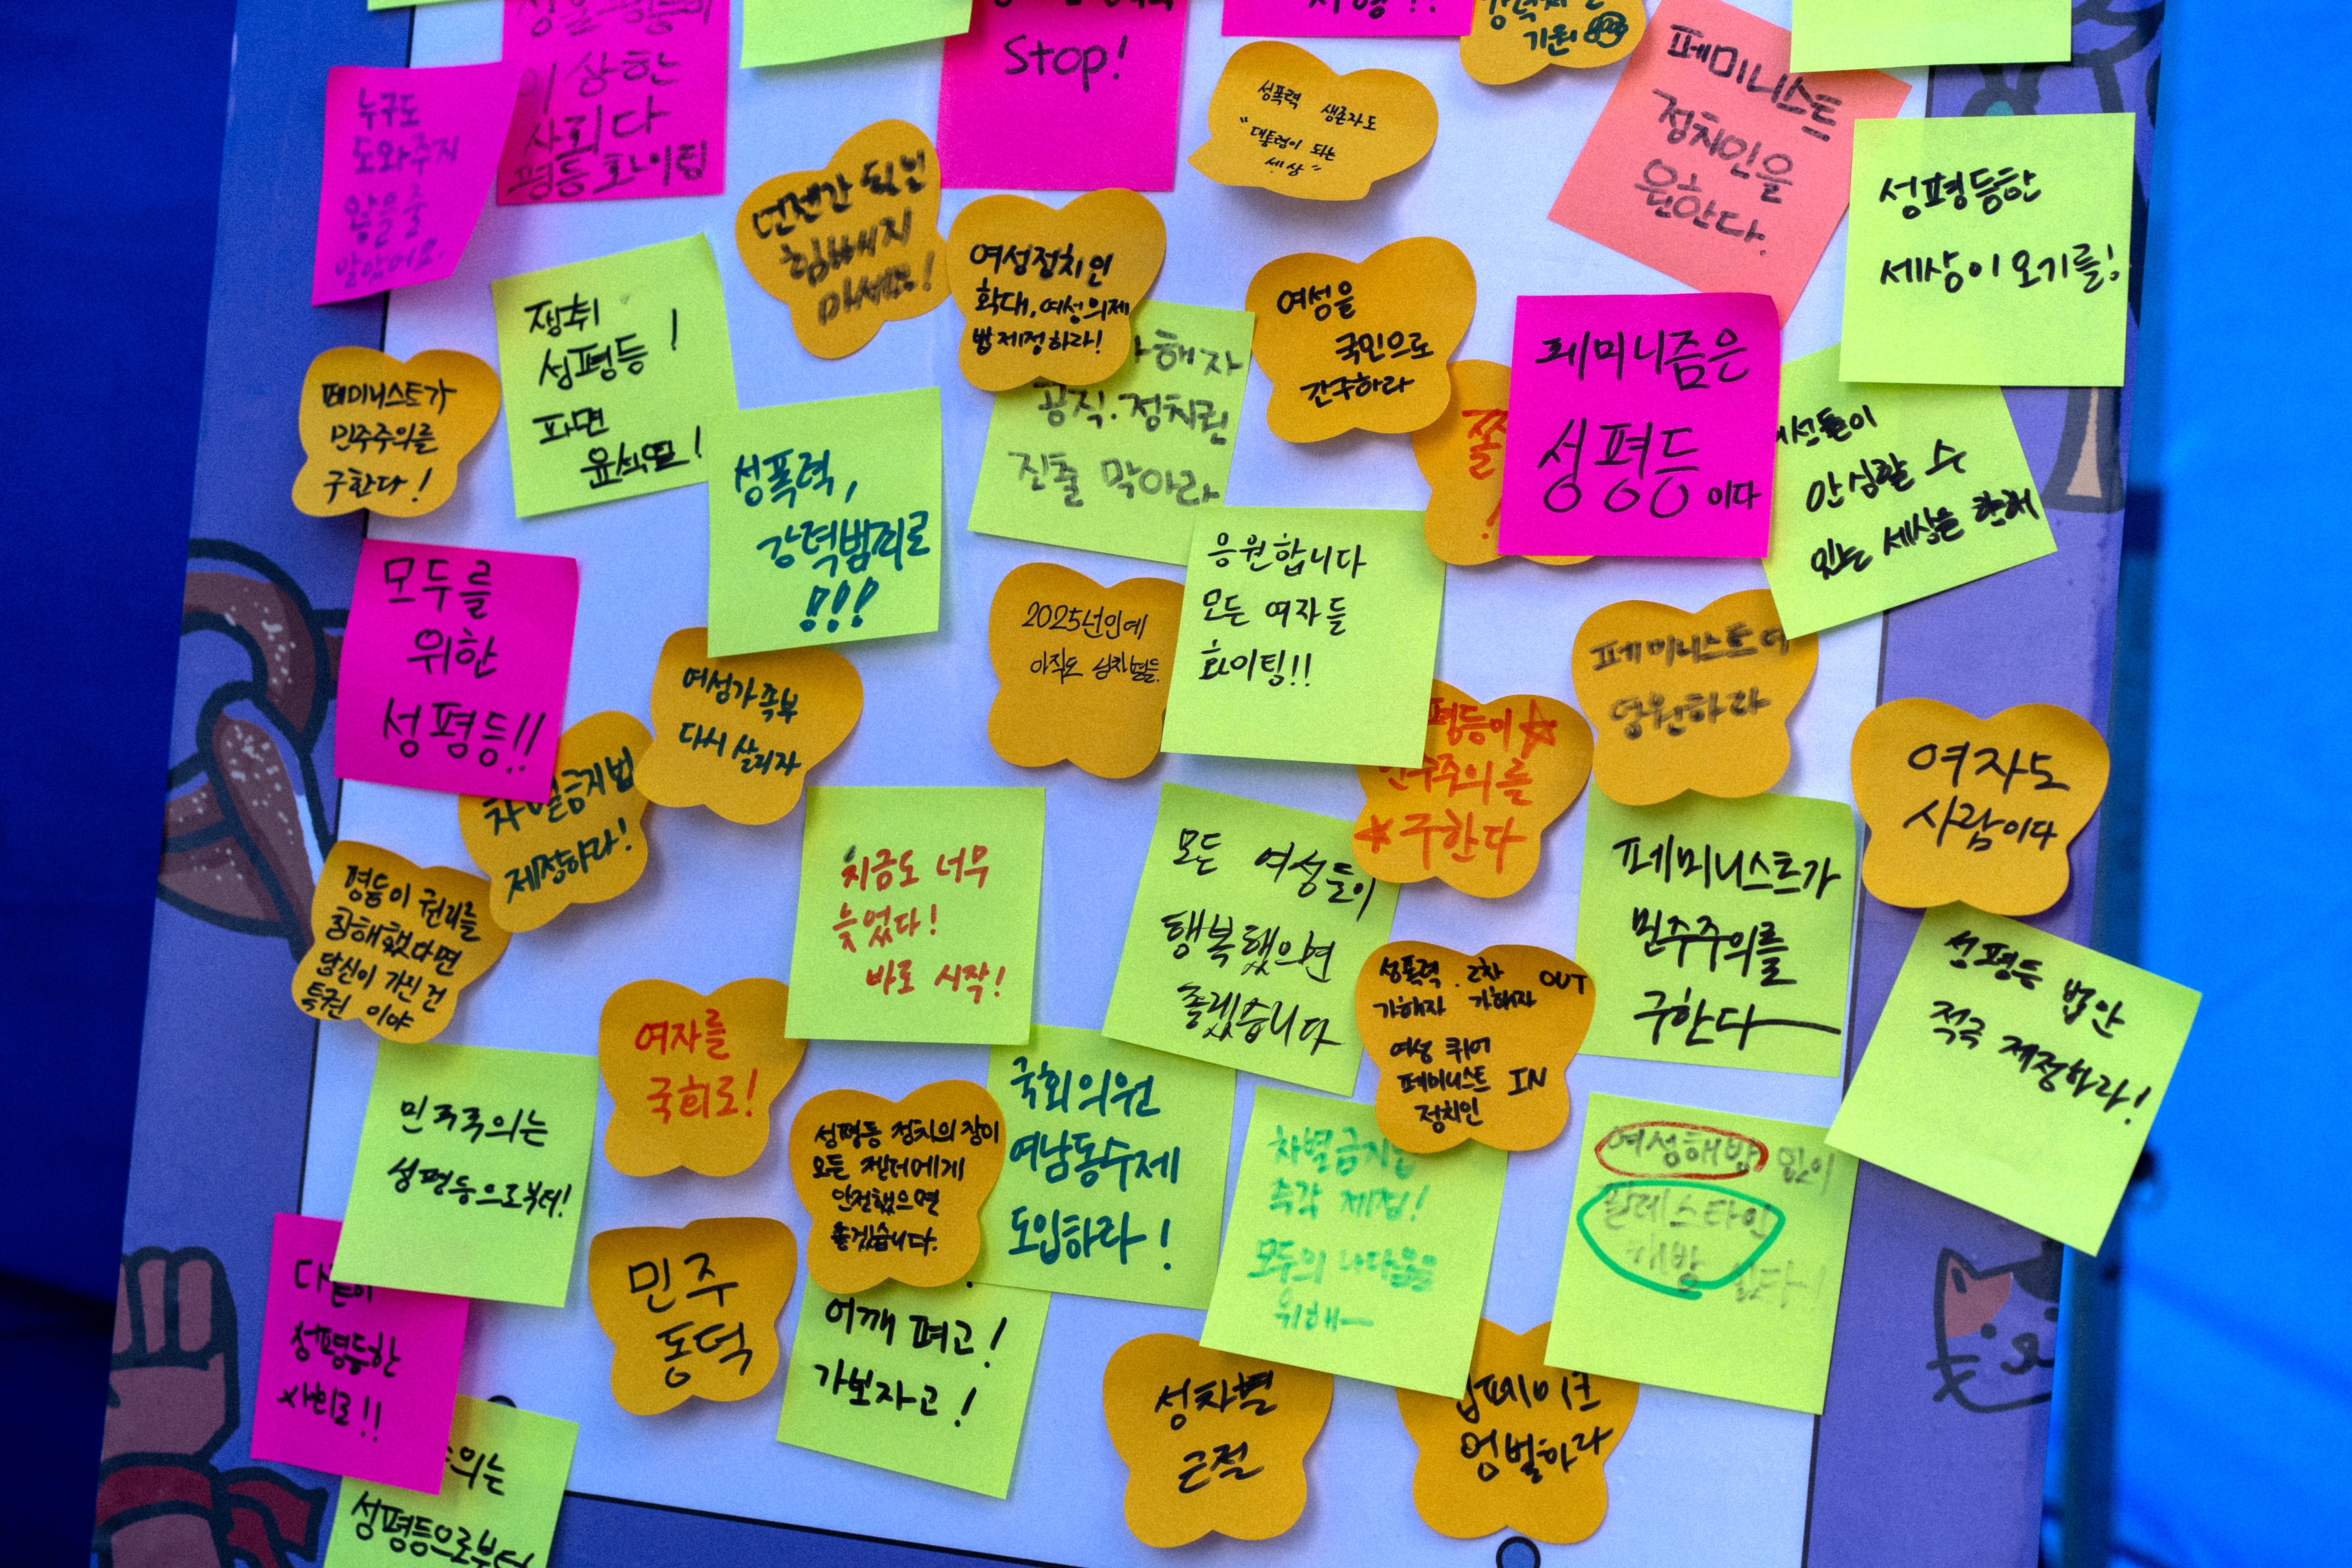 이 상한
사회다
평등 화이팅
Stop!
기원
성폭력 생존자도
"대통령이 되는
세상"
페미니스트
정치인을
원한다.
누구도
도와주지
않을 줄
알았어요.
언젠간 되니
힘빼지
마세요!
여성정치인
확대, 여성의제
법제정하라!
성평등한
세상이 오기를!
쟁취
성평등!
파면
윤석열!
여성을
국민으로
간주하라
해자
공직·정치권
진출 막아라
페미니즘은
성평등이다
페미니스트가
민주주의를
구한다!
성폭력,
강력범죄로
!!!
쫄
!
안심할 수
있는 세상을 향해
모두를
위한
성평등!!
2025년인데
아직도 성차별
응원합니다
모든 여자들
화이팅!!
페미니스트여
영원하라
여성가족부
다시 살리자
차별금지법
제정하라!
평등이
민주주의를
구한다
여자도
사람이다
평등이 권리를
침해했다면
당신이 가진 건
특권 이야
지금도 너무
늦었다!
바로 시작!
모든 여성들이
행복했으면
좋겠습니다
페미니스트가
민주주의를
구한다
성폭력 . 2차 OUT
가해자 가해자
여성 퀴어
페미니스트 IN
정치인
성평등 법안
적극 제정하라!
여자를
국회로!
민주주의는
성평등으로부터!
성평등 정치의 장이
모든 젠더에게
안전했으면
좋겠습니다.
국회의원
여남동수제
도입하라!
차별금지법
즉각 제정!
모두의 나다움을
위해
여성해방 없이
팔레스타인
해방 없다!
다같이
성평등한
사회로!!
민주
동덕
어깨 펴고!
가보자고!
성차별
근절
딥페이크
엄벌하라
의는
성평등으로부터